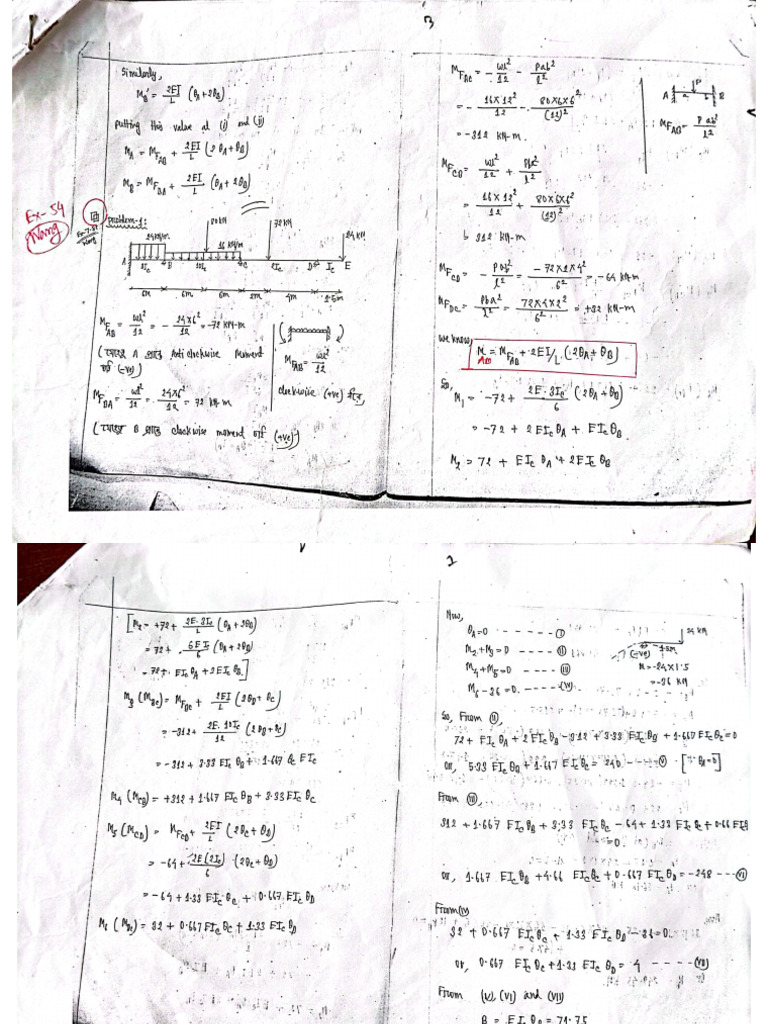 3
Similarly,
M_B' = 2EI/L (θ_A + 2θ_B)
putting this value at (i) and (ii)
M_A = M_FAB + 2EI/L (2θ_A + θ_B)
M_B = M_FBA + 2EI/L (θ_A + 2θ_B)
Ex-54
Wang
Problem-1:
80 kN
72 kN
24 kN
24 kN/m.
16 kN/m
A 3I_c B 10I_c C 2I_c D I_c E
6m 6m 6m 2m 4m 1.5m
M_FAB = wl²/12 = - 24×6²/12 = -72 kN-m
M_FAB = wl²/12
Anti clockwise Moment
(-ve)
clockwise (+ve)
M_FBA = wl²/12 = 24×6²/12 = 72 kN-m
B clockwise moment (+ve)
M_FBC = - wl²/12 - Pab²/l²
= - 16×12²/12 - 80×6×6²/(12)²
= -312 kN-m.
A P B
a b
∴ M_FAB = P ab²/l²
M_FCB = wl²/12 + Pba²/l²
= 16×12²/12 + 80×6×6²/(12)²
= 312 kN-m
M_FCD = - Pab²/l² = -72×2×4²/6² = -64 kN-m
M_FDC = Pba²/l² = 72×4×2²/6² = +32 kN-m
we know,
M_AB = M_FAB + 2EI/L (2θ_A + θ_B)
So,
M_1 = -72 + 2E·3I_c/6 (2θ_A + θ_B)
= -72 + 2EI_c θ_A + EI_c θ_B
M_2 = 72 + EI_c θ_A + 2EI_c θ_B
[M_2 = +72 + 2E·3I_c/L (θ_A + 2θ_B)
= 72 + 6EI_c/6 (θ_A + 2θ_B)
= 72 + EI_c θ_A + 2EI_c θ_B]
M_3 (M_BC) = M_FBC + 2EI/L (2θ_B + θ_C)
= -312 + 2E·10I_c/12 (2θ_B + θ_C)
= -312 + 3.33 EI_c θ_B + 1.667 θ_C EI_c
M_4 (M_CB) = +312 + 1.667 EI_c θ_B + 3.33 EI_c θ_C
M_5 (M_CD) = M_FCD + 2EI/L (2θ_C + θ_D)
= -64 + 2E(2I_c)/6 (2θ_C + θ_D)
= -64 + 1.33 EI_c θ_C + 0.667 EI_c θ_D
M_6 (M_DC) = 32 + 0.667 EI_c θ_C + 1.33 EI_c θ_D
Now,
θ_A = 0 ------ (I)
M_2 + M_3 = 0 ------ (II)
M_4 + M_5 = 0 ------ (III)
M_6 - 36 = 0 ------ (IV)
24 kN
1.5m
(-ve)
M = -24×1.5
= -36 kN
So, From (II),
72 + EI_c θ_A + 2EI_c θ_B - 312 + 3.33 EI_c θ_B + 1.667 EI_c θ_C = 0
or, 5.33 EI_c θ_B + 1.667 EI_c θ_C = 240 ---- (V) [∵ θ_A = 0]
From (III),
312 + 1.667 EI_c θ_B + 3.33 EI_c θ_C - 64 + 1.33 EI_c θ_C + 0.66 EI_c θ_D = 0
or, 1.667 EI_c θ_B + 4.66 EI_c θ_C + 0.667 EI_c θ_D = -248 --- (VI)
From (IV)
32 + 0.667 EI_c θ_C + 1.33 EI_c θ_D - 36 = 0
or, 0.667 EI_c θ_C + 1.33 EI_c θ_D = 4 ---- (VII)
From (V), (VI) and (VII)
B = EI θ_B = 71.75